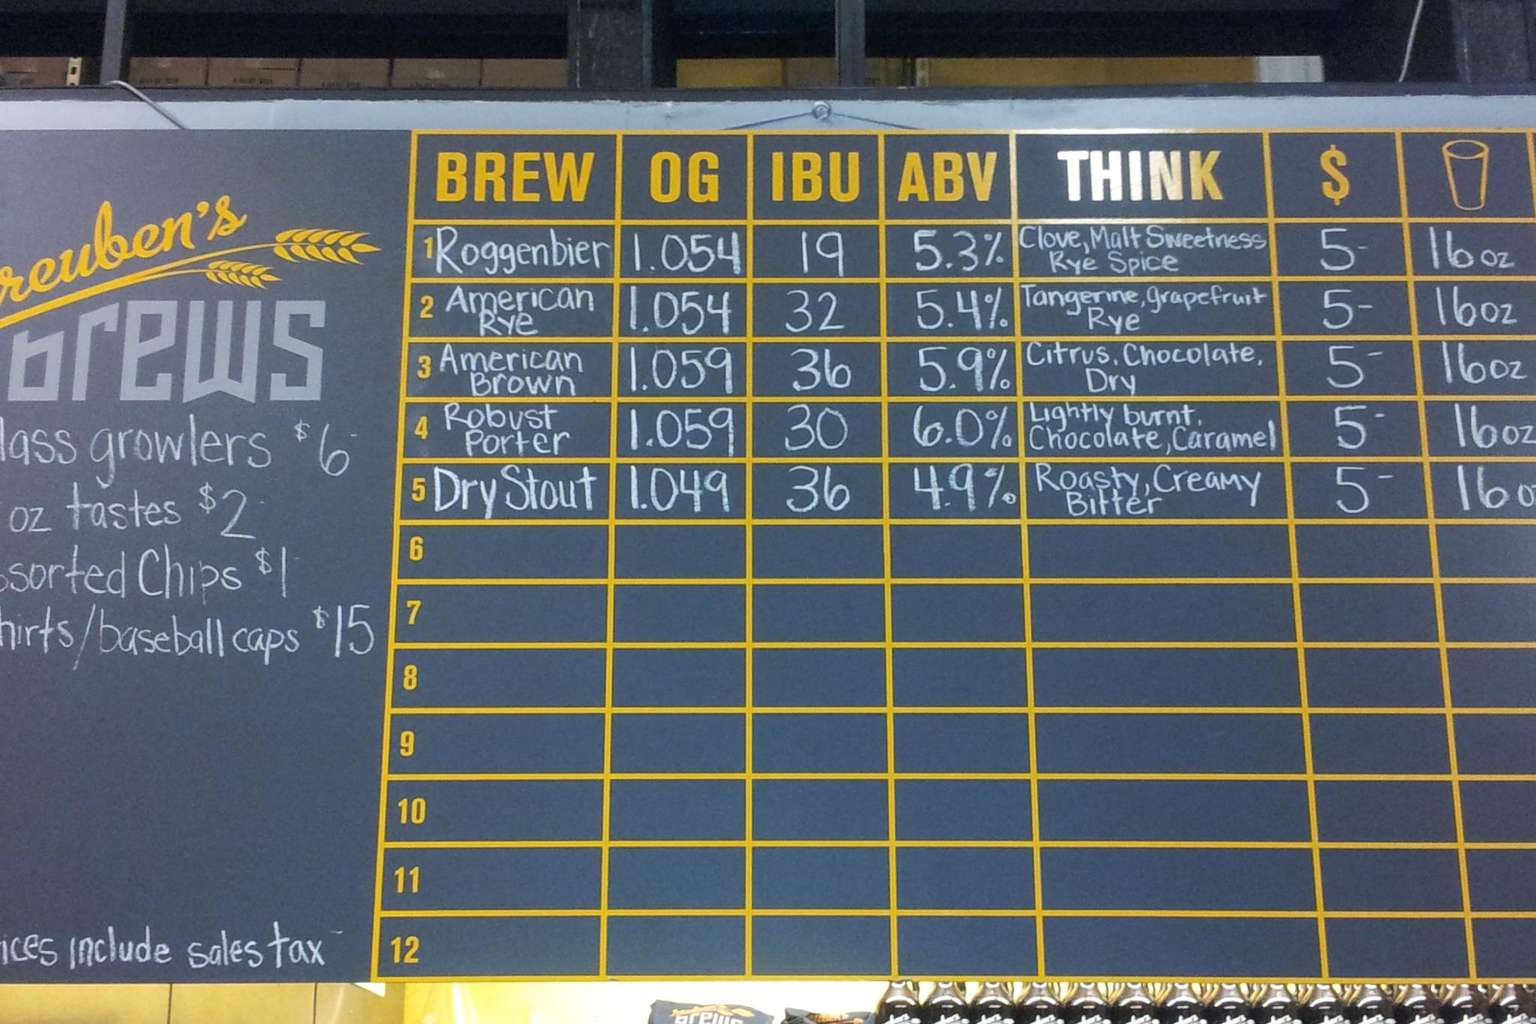 reuben's
brews
glass growlers $6-
oz tastes $2
Assorted Chips $1
shirts/baseball caps $15
prices include sales tax
BREW OG IBU ABV THINK $
1 Roggenbier 1.054 19 5.3% Clove, Malt Sweetness Rye Spice 5- 16oz
2 American Rye 1.054 32 5.4% Tangerine, grapefruit Rye 5- 16oz
3 American Brown 1.059 36 5.9% Citrus, Chocolate, Dry 5- 16oz
4 Robust Porter 1.059 30 6.0% Lightly burnt, Chocolate, Caramel 5- 16oz
5 Dry Stout 1.049 36 4.9% Roasty, Creamy Bitter 5- 16oz
6
7
8
9
10
11
12
brews